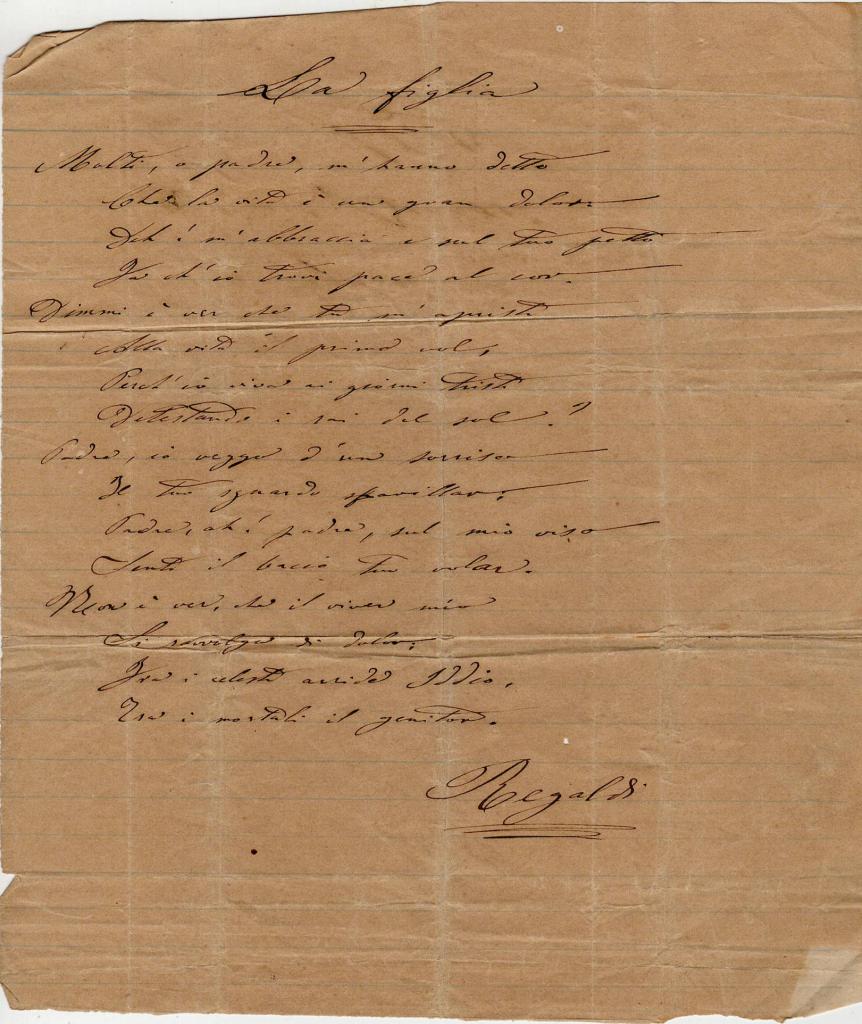 La figlia
Molti, o padre, m'hanno detto
Che la vita è un gran dolor:
Deh! m'abbraccia e sul tuo petto
Fa ch'io trovi pace al cor.
Dimmi è ver che tu m'apristi
Alla vita il primo vol,
Perch'io viva ai giorni tristi
Detestando i rai del sol?
Padre, io veggo d'un sorriso
Il tuo sguardo sfavillar;
Padre, ah! padre, sul mio viso
Sento il bacio tuo volar.
Non è ver, che il viver mio
Si ravvolga di dolor;
Fra i celesti arride Iddio,
Tra i mortali il genitor.
Regaldi